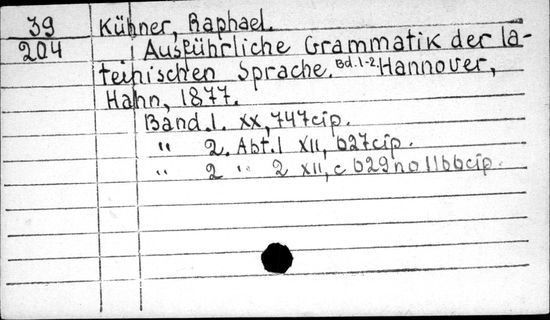 39
204
Kühner, Raphael.
Ausführliche Grammatik der la-
teinischen Sprache. Bd.1-2. Hannover,
Hahn, 1877.
Band.1. XX, 747 cтр.
" 2. Abt.1 XII, 627 cтр.
" 2 " 2 XII, c 629 по 1166 cтр.